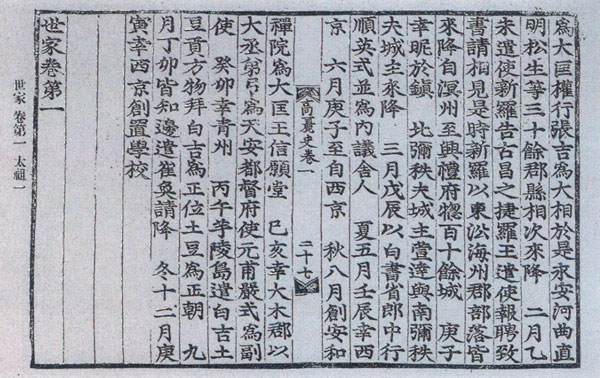 爲大匡權行張吉爲大相於是永安河曲直
明松生等三十餘郡縣相次來降　二月乙
未遣使新羅告古昌之捷羅王遣使報聘致
書請相見是時新羅以東沿海州郡部落皆
來降自溟州至興禮府揔百十餘城　庚子
幸昵於鎭　北彌秩夫城主萱達與南彌秩
夫城主來降　三月戊辰以白書省郎中行
順英式並爲內議舍人　夏五月壬辰幸西
京　六月庚子至自西京　秋八月創安和
高麗史卷一　二十七
禪院爲大匡王信願堂　己亥幸大木郡以
大丞弟弓爲天安都督府使元甫嚴式爲副
使　癸卯幸青州　丙午芋陵島遣白吉土
豆貢方物拜白吉爲正位土豆爲正朝　九
月丁卯皆知邊遣崔奐請降　冬十二月庚
寅幸西京創置學校
世家卷第一
世家 卷第一 太祖一